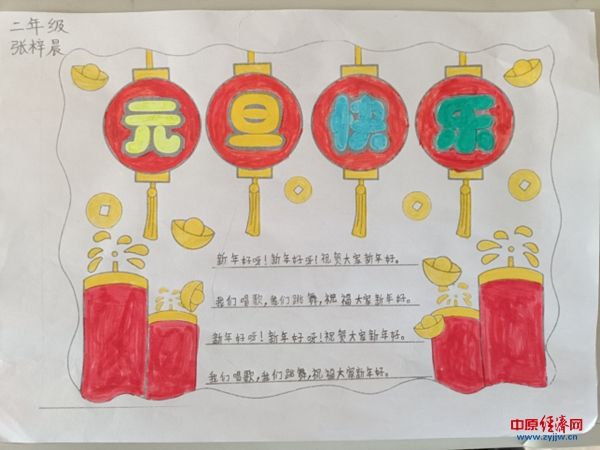 二年级
张梓晨
元旦快乐
新年好呀!新年好呀!祝贺大家新年好。
我们唱歌,我们跳舞,祝福大家新年好。
新年好呀!新年好呀!祝贺大家新年好。
我们唱歌,我们跳舞,祝福大家新年好。
中原经济网
www.zyjjw.cn